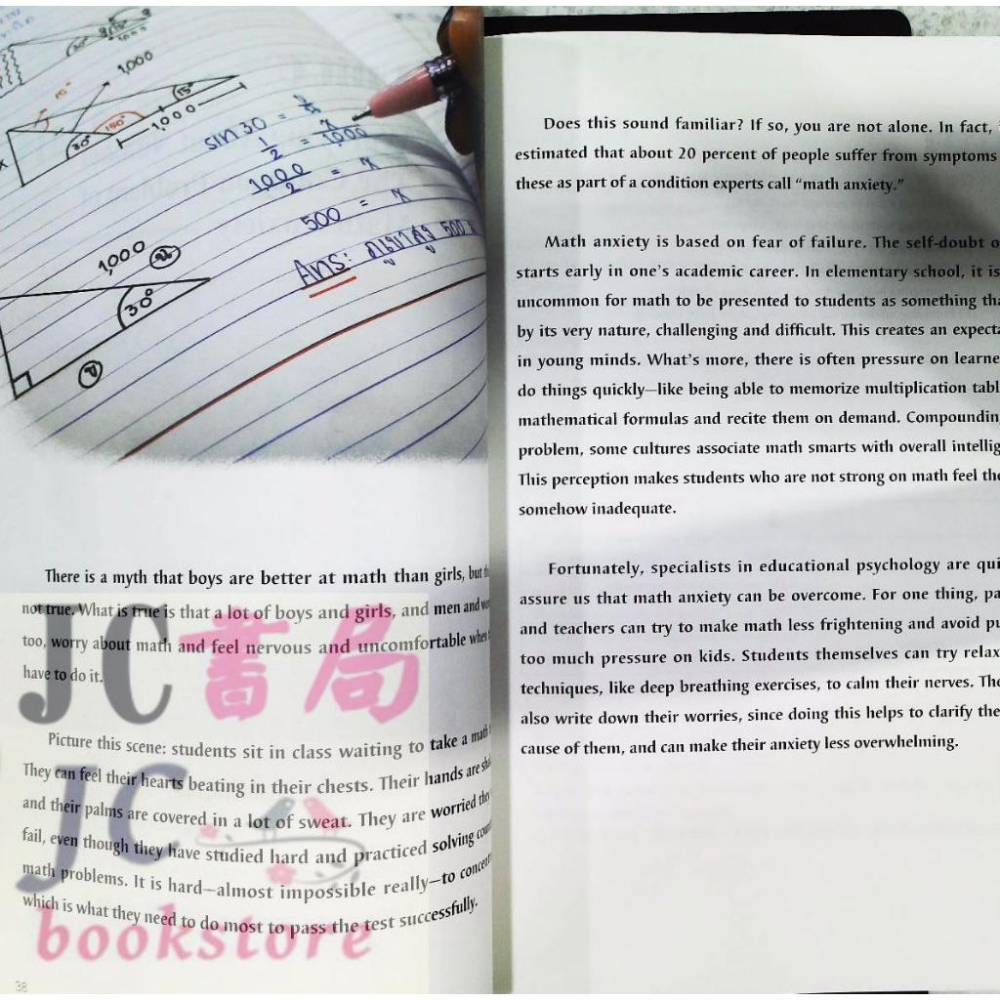 1,000
15°
150°
30°
15°
1,000
sin 30 = x
1/2 = x/1000
1000/2 = x
500 = x
Ans: ภูเขาสูง 500
1,000
30°
There is a myth that boys are better at math than girls, but
not true. What is true is that a lot of boys and girls, and men and
too, worry about math and feel nervous and uncomfortable when
have to do it.
Picture this scene: students sit in class waiting to take a math
They can feel their hearts beating in their chests. Their hands are
and their palms are covered in a lot of sweat. They are worried they
fail, even though they have studied hard and practiced solving
math problems. It is hard—almost impossible really—to
which is what they need to do most to pass the test successfully.
38
JC書局
JC
bookstore
Does this sound familiar? If so, you are not alone. In fact,
estimated that about 20 percent of people suffer from symptoms
these as part of a condition experts call “math anxiety.”
Math anxiety is based on fear of failure. The self-doubt
starts early in one’s academic career. In elementary school, it is
uncommon for math to be presented to students as something
by its very nature, challenging and difficult. This creates an
in young minds. What’s more, there is often pressure on
do things quickly—like being able to memorize multiplication
mathematical formulas and recite them on demand.
problem, some cultures associate math smarts with overall
This perception makes students who are not strong on math feel
somehow inadequate.
Fortunately, specialists in educational psychology are
assure us that math anxiety can be overcome. For one thing,
and teachers can try to make math less frightening and avoid
too much pressure on kids. Students themselves can try
techniques, like deep breathing exercises, to calm their nerves.
also write down their worries, since doing this helps to clarify the
cause of them, and can make their anxiety less overwhelming.